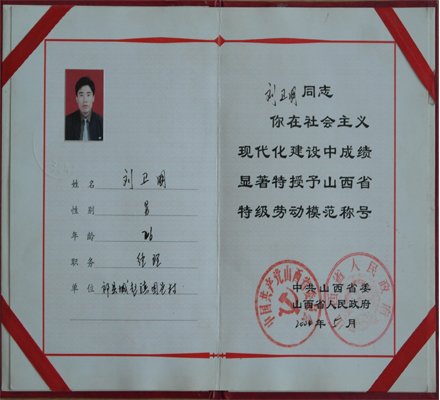 姓名 刘卫明
性别 男
年龄
职务 经理
单位
刘卫明 同志
你在社会主义
现代化建设中成绩
显著特授予山西省
特级劳动模范称号
中共山西省委
山西省人民政府
年5月
中国共产党山西省委员会
山西省人民政府